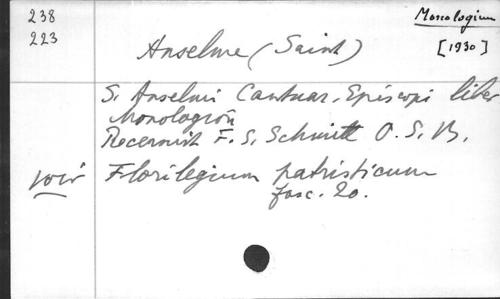 238
223
Monologium
[1930]
Anselme (Saint)
S. Anselmi Cantuar. Episcopi liber
Monologion
Recensuit F. S. Schmitt O. S. B.
voir Florilegium patristicum
fasc. 20.